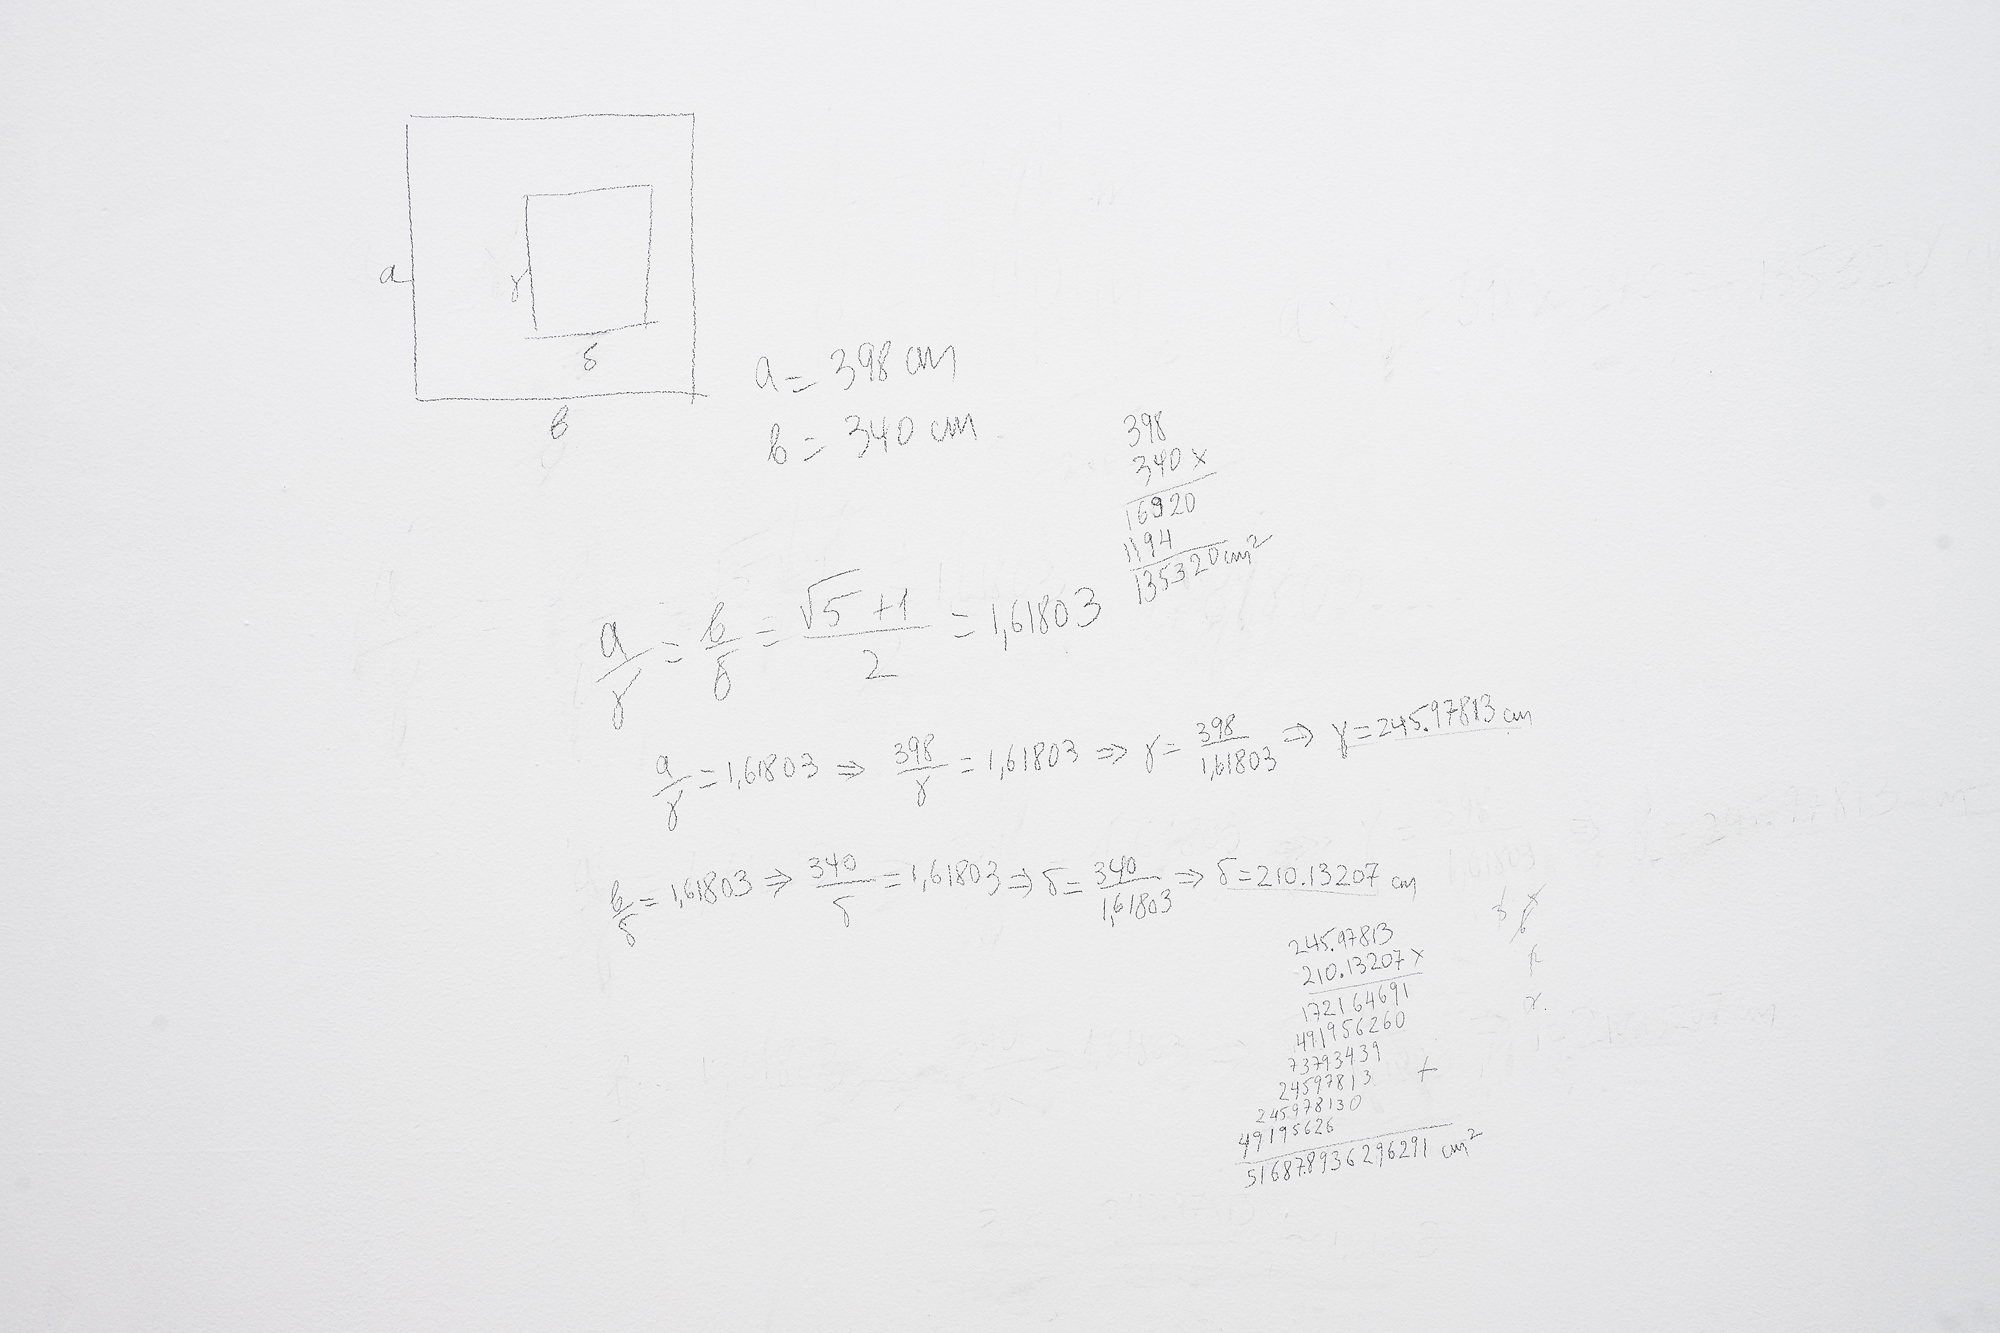 a
γ
δ
β
a = 398 cm
β = 340 cm
398
340 x
16920
1194
135320 cm²
a/γ = β/δ = √5 +1/2 = 1,61803
a/γ = 1,61803 ⇒ 398/γ = 1,61803 ⇒ γ = 398/1,61803 ⇒ γ = 245.97813 cm
β/δ = 1,61803 ⇒ 340/δ = 1,61803 ⇒ δ = 340/1,61803 ⇒ δ = 210.13207 cm
245.97813
210.13207 x
172164691
491956260
73793439
24597813 +
245978130
49195626
51687.8936296291 cm²